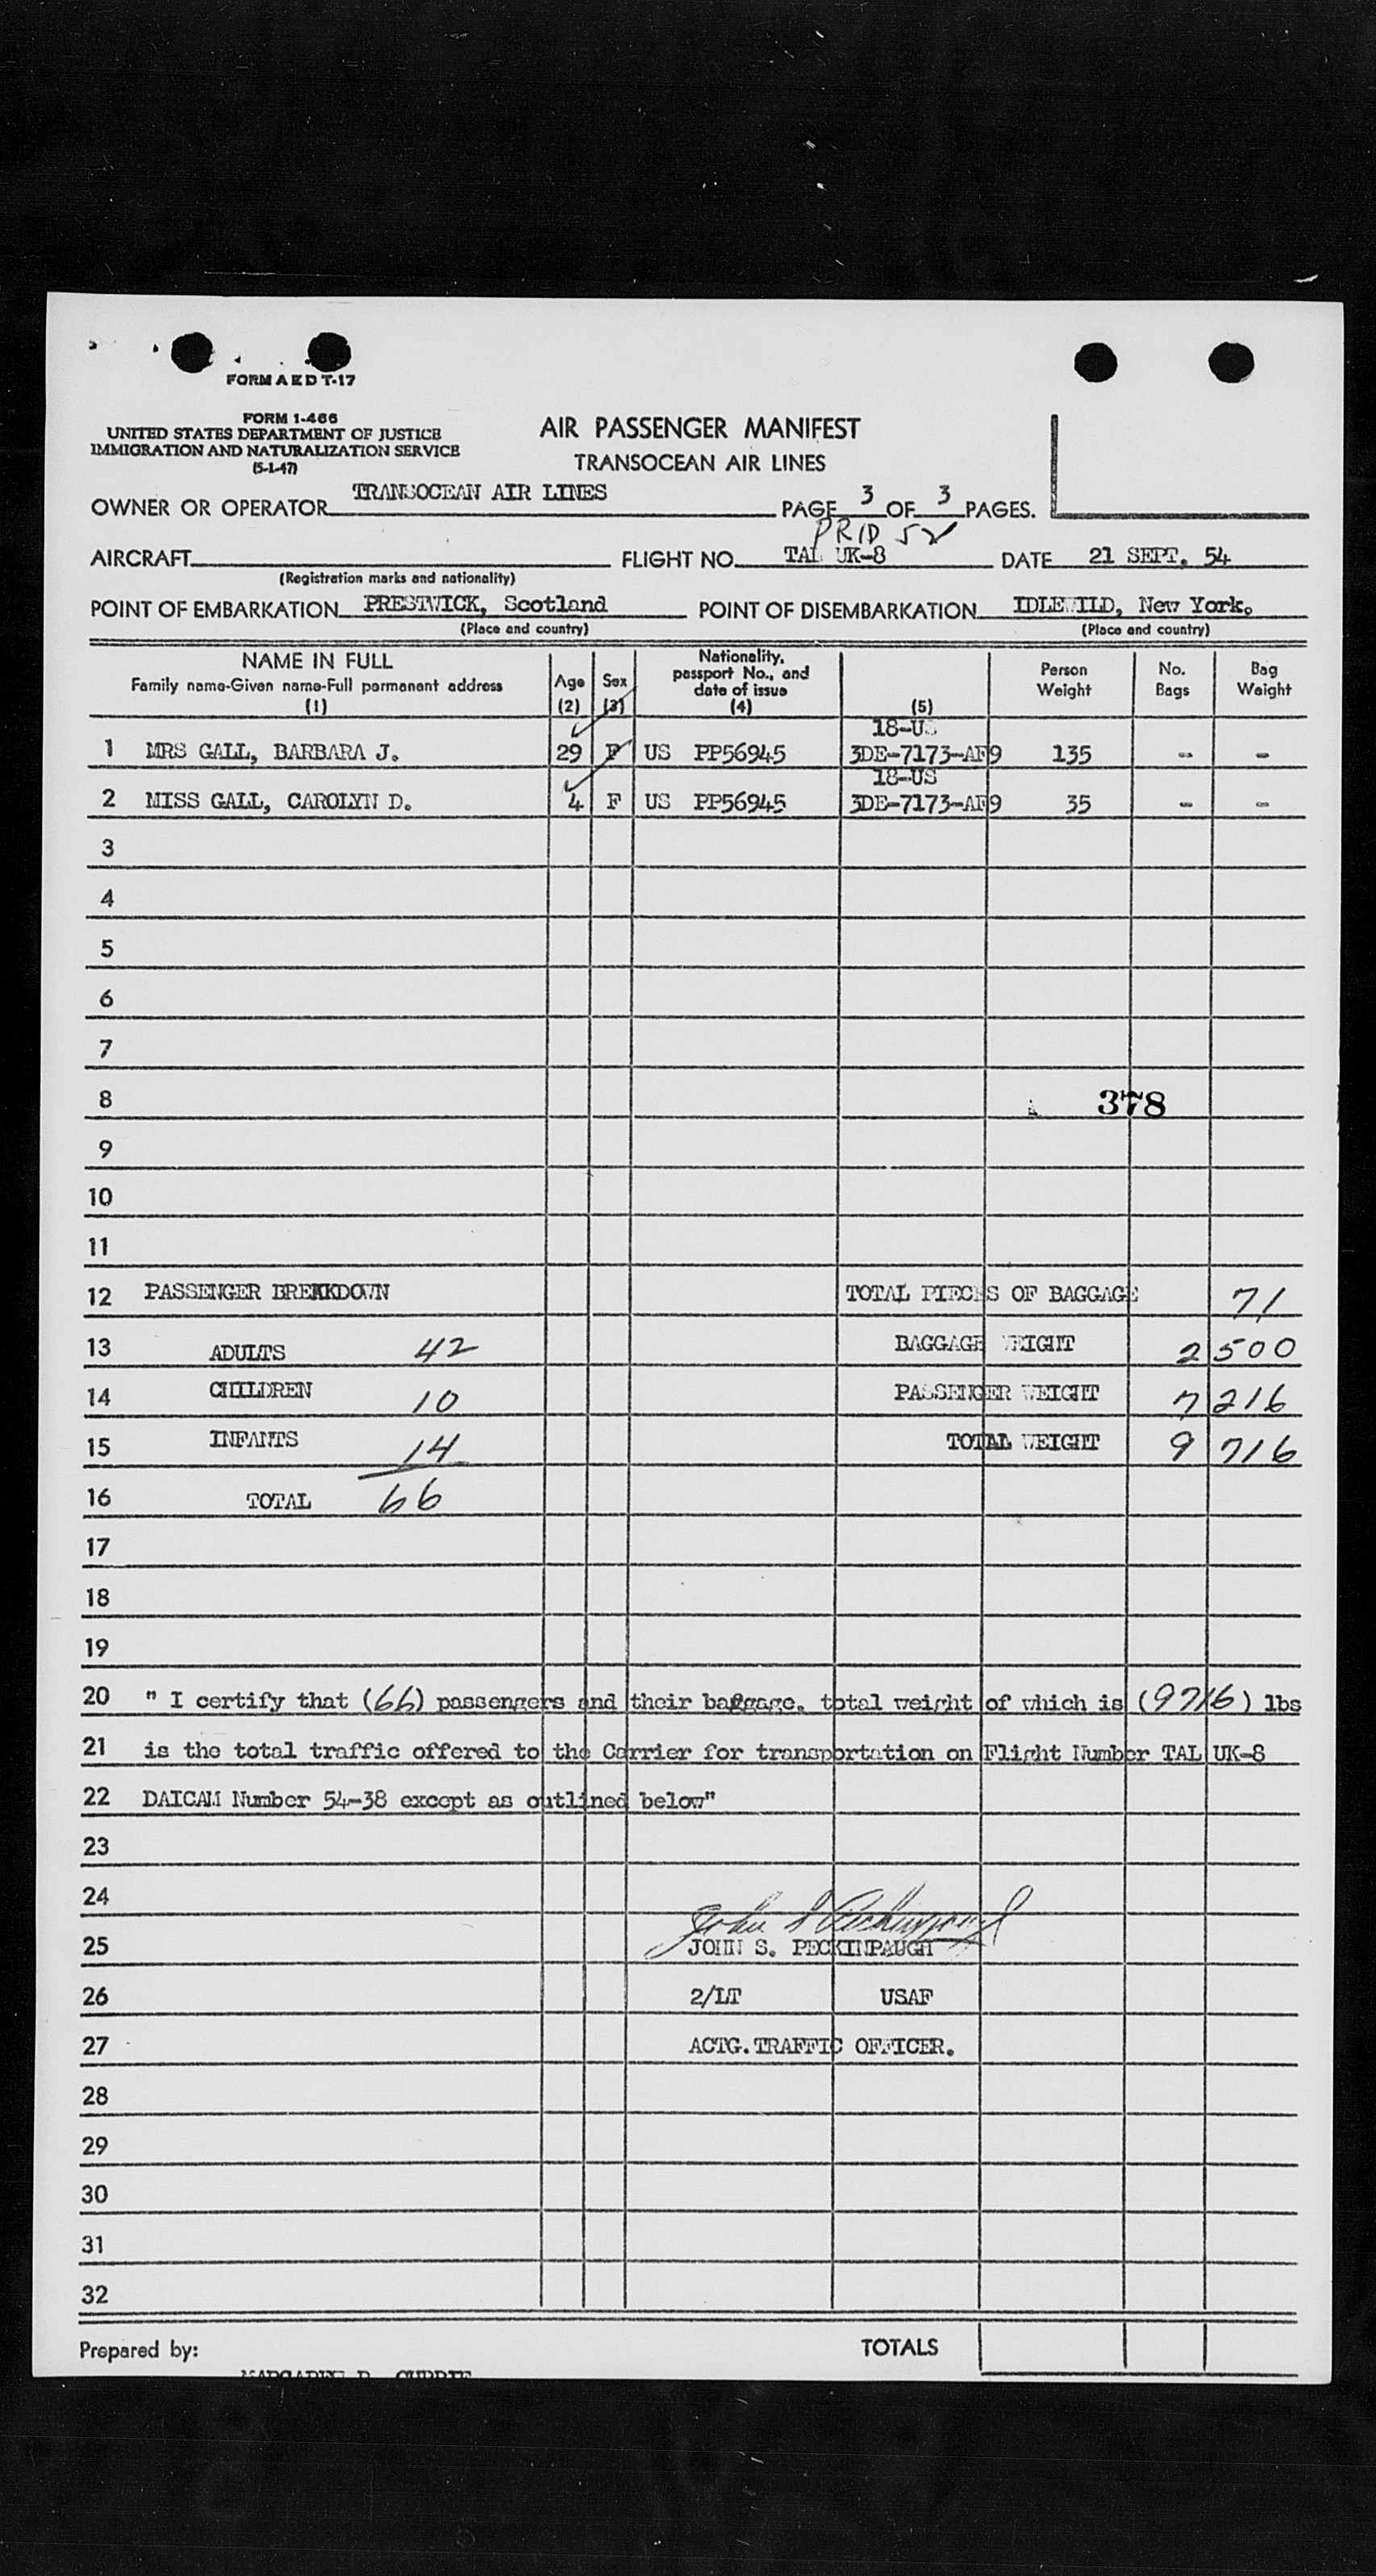 FORM A E D T-17
FORM 1-466
UNITED STATES DEPARTMENT OF JUSTICE
IMMIGRATION AND NATURALIZATION SERVICE
(5-1-47)
AIR PASSENGER MANIFEST
TRANSOCEAN AIR LINES
OWNER OR OPERATOR TRANSOCEAN AIR LINES PAGE 3 OF 3 PAGES.
AIRCRAFT FLIGHT NO. TAL UK-8 DATE 21 SEPT. 54
(Registration marks and nationality)
POINT OF EMBARKATION PRESTWICK, Scotland POINT OF DISEMBARKATION IDLEWILD, New York.
(Place and country) (Place and country)
NAME IN FULL
Family name-Given name-Full permanent address
(1)
Age
(2)
Sex
(3)
Nationality,
passport No., and
date of issue
(4)
(5)
Person
Weight
No.
Bags
Bag
Weight
18-US
1 MRS GALL, BARBARA J. 29 F US PP56945 3DE-7173-AF9 135 - -
18-US
2 MISS GALL, CAROLYN D. 4 F US PP56945 3DE-7173-AF9 35 - -
3
4
5
6
7
8 378
9
10
11
12 PASSENGER BREAKDOWN TOTAL PIECES OF BAGGAGE 71
13 ADULTS 42 BAGGAGE WEIGHT 2500
14 CHILDREN 10 PASSENGER WEIGHT 7216
15 INFANTS 14 TOTAL WEIGHT 9716
16 TOTAL 66
17
18
19
20 " I certify that (66) passengers and their baggage, total weight of which is (9716) lbs
21 is the total traffic offered to the Carrier for transportation on Flight Number TAL UK-8
22 DAICAM Number 54-38 except as outlined below"
23
24
John S Peckinpaugh
25 JOHN S. PECKINPAUGH
26 2/LT USAF
27 ACTG. TRAFFIC OFFICER.
28
29
30
31
32
Prepared by: TOTALS